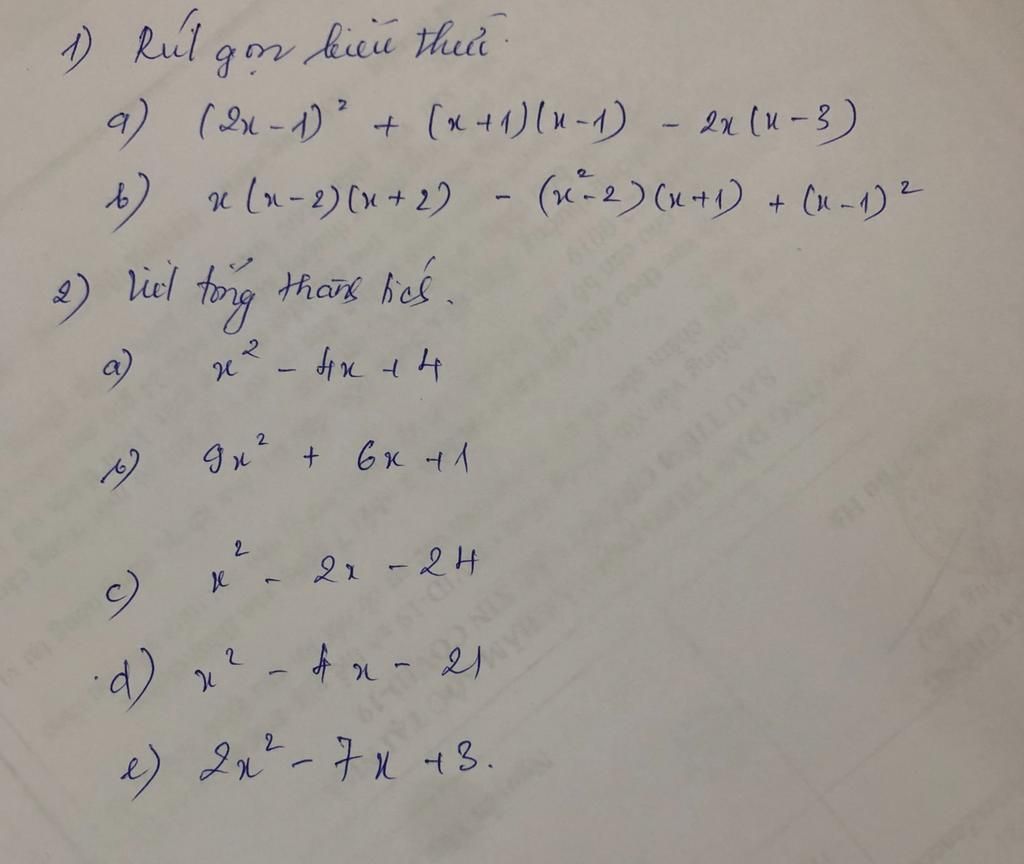 1) Rút gọn biểu thức.
a) (2x-1)² + (x+1)(x-1) - 2x(x-3)
b) x(x-2)(x+2) - (x²-2)(x+1) + (x-1)²
2) Viết tổng thành tích.
a) x² - 4x + 4
b) 9x² + 6x + 1
c) x² - 2x - 24
d) x² - 4x - 21
e) 2x² - 7x + 3.